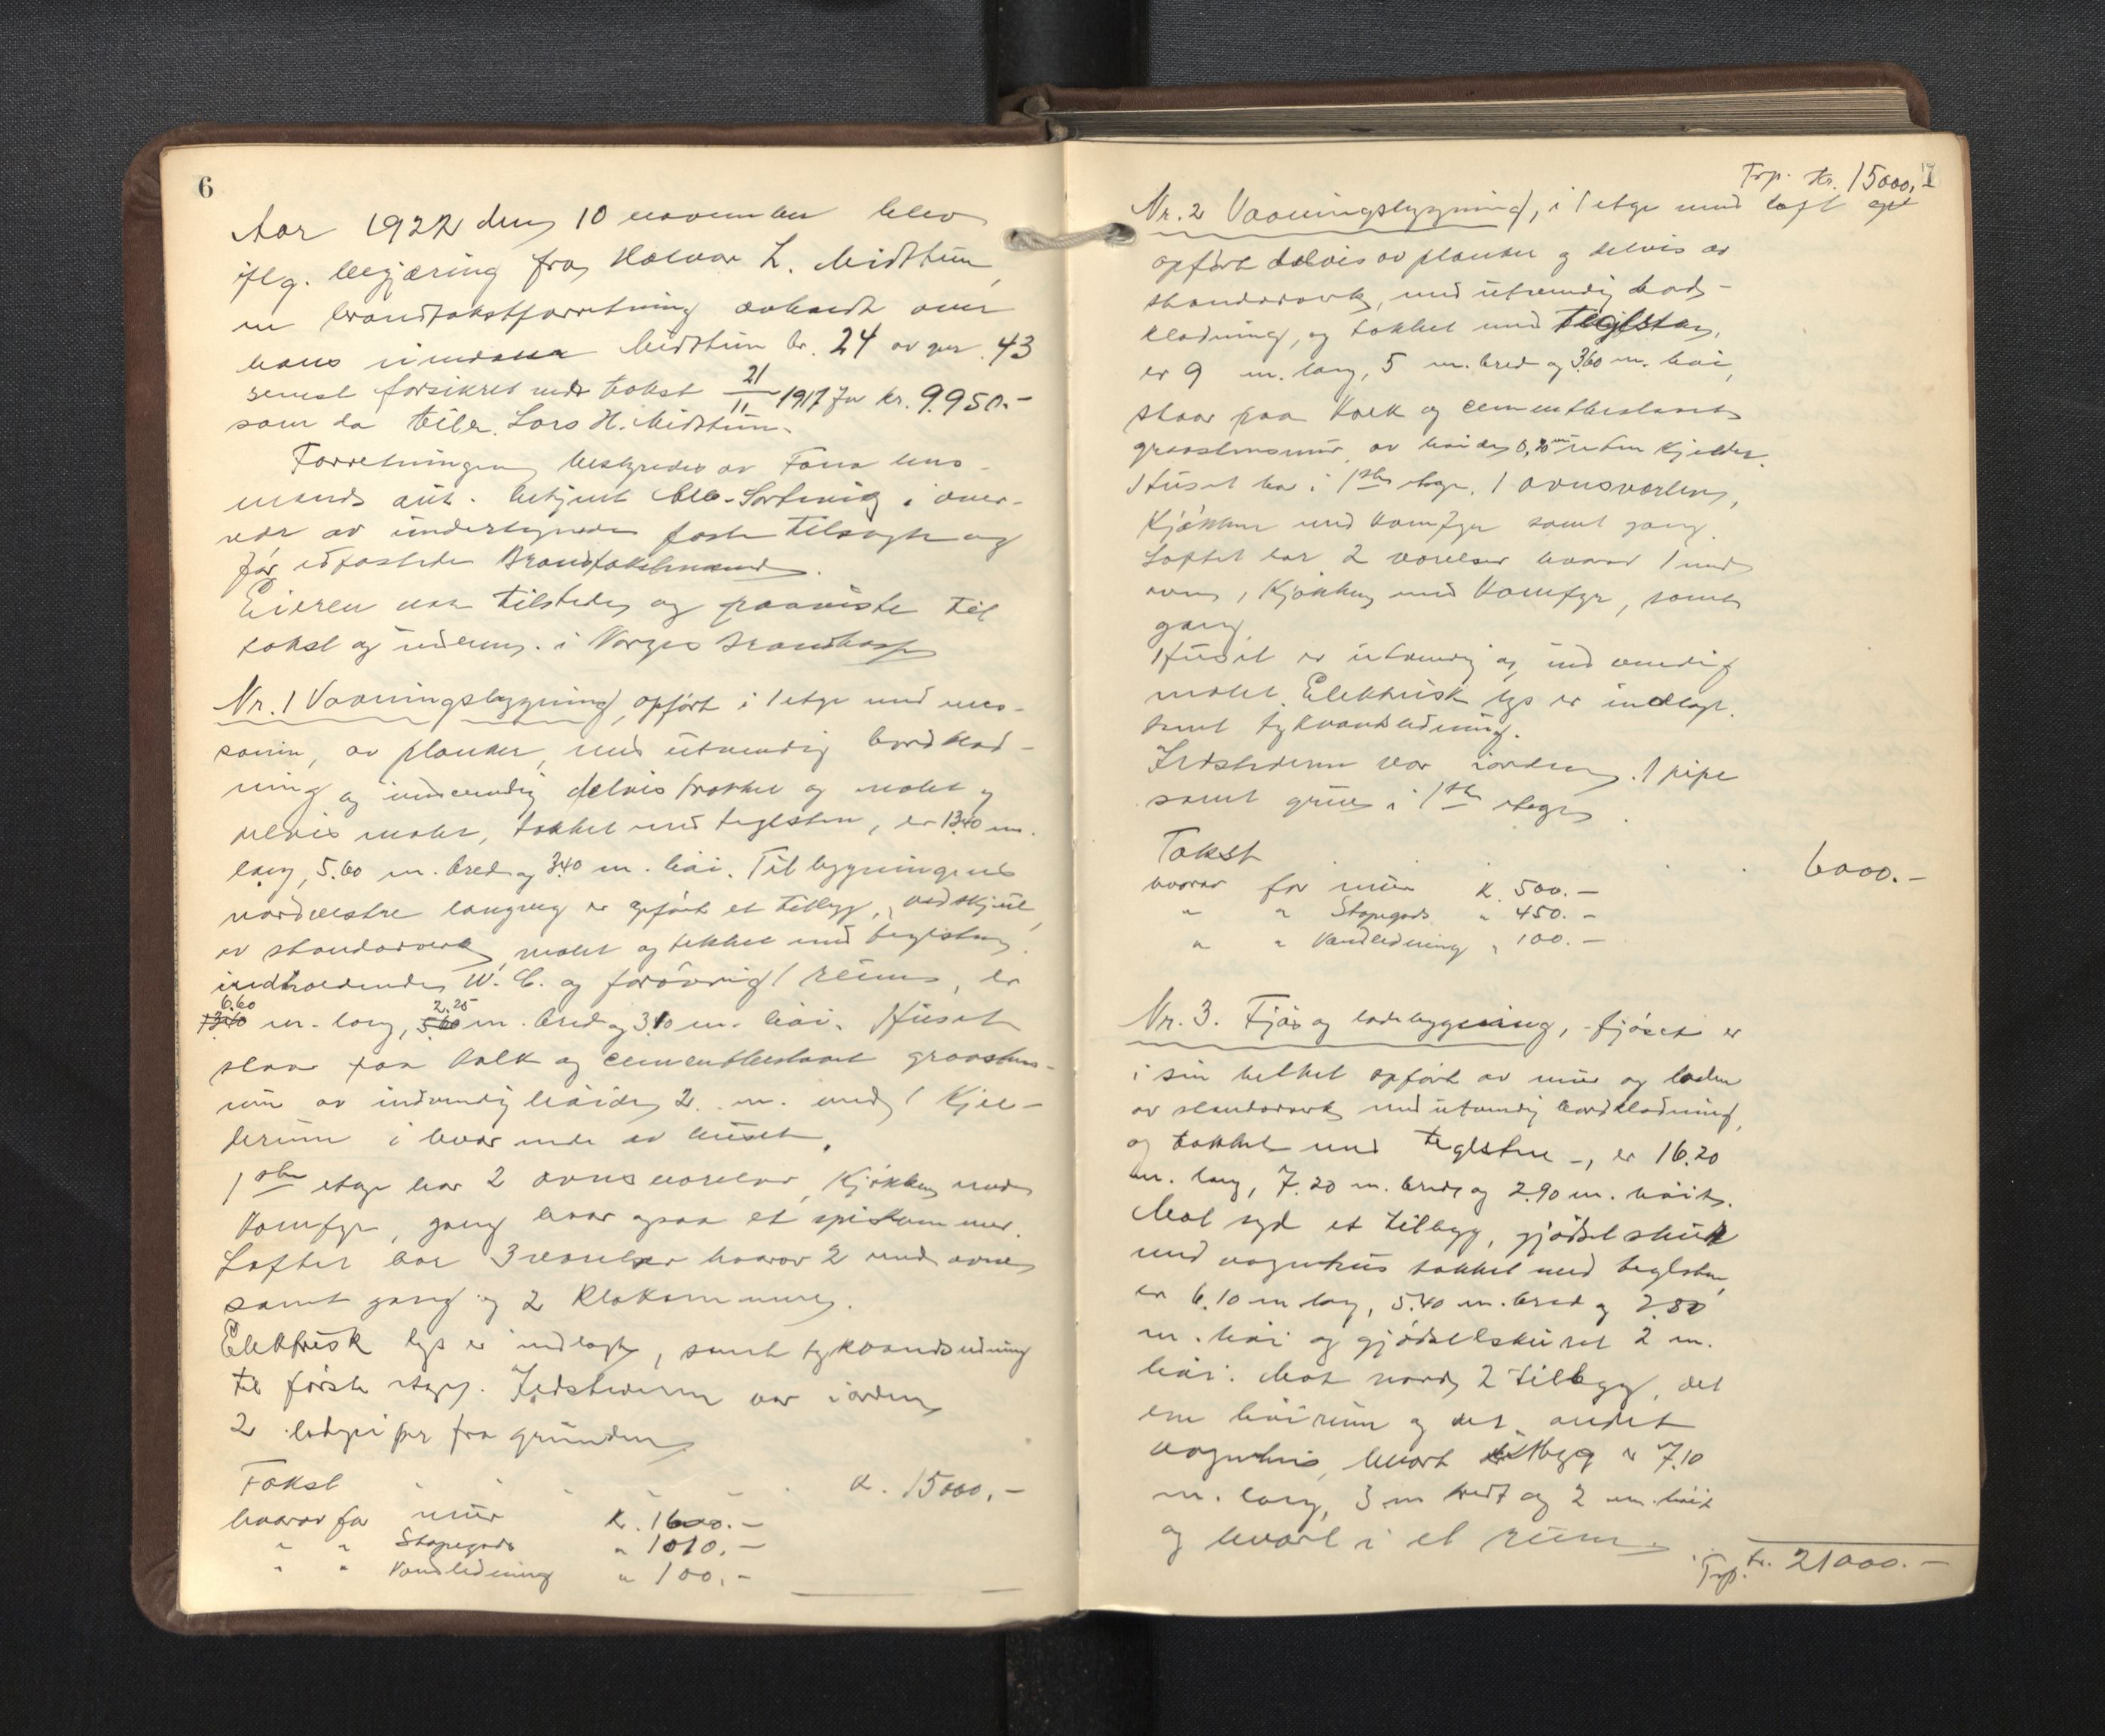 6
Aar 1922 den 10 november blev
iflg. begjæring fra Halvor L. Midttun,
en brandtakstforretning avholdt over
hans eiendom Midttun br. 24 av gnr. 43
senest forsikret under takst 21/11 1917 for kr. 9.950.-
som da tilh. Lars H. Midttun.
Forretningen bestyredes av Fana lens-
mands aut. betjent i over-
vær av undertegnede faste tilsagte og
før edfæstede Brandtakstmænd.
Eieren var tilstede og paaviste til
takst og indlem. i Norges Brandkasse
Nr. 1 Vaaningsbygning, opført i 1 etage med mes-
sanin, av planker, med utvendig bordklæd-
ning og indvendig delvis trækket og malet og
delvis malet, tækket med teglsten, er 13.40 m.
lang, 5.60 m. bred og 3.40 m. høi. Til bygningens
nordvestre langvæg er opført et tilbygg, vedskjul,
av standerverk, malet og tækket med teglsten
indholdende W.C. og forøvrig 1 rum, er
6.60 2.25
13.40 m. lang, 5.60 m. bred og 3.10 m. høi. Huset
staar paa kalk og cementbeslaaet graastens-
mur av indvendig høide 2 m. med 1 kjel-
lerrum i hver ende av huset.
1ste etage har 2 ovnsværelser, Kjøkken med
Komfyr, gang hvor ogsaa et spiskammer.
Loftet har 3 værelser hvorav 2 med ovne
samt gang og 2 Klækammere.
Elektrisk lys er indlagt, samt trykvandsledning
til første etage. Ildstederne var i orden
2 lodpiper fra grunden
Takst . . . . . . k. 15000,-
hvorav for mur k. 1600.-
" " Støpegods " 1010.-
" " Vandledning " 100.-
Trp. kr. 15000.- 7
Nr. 2 Vaaningsbygning, i 1 etage med loft og
opført delvis av planker og delvis av
standerverk, med utvendig bord-
klædning, og tækket med teglsten,
er 9 m. lang, 5 m. bred og 3.60 m. høi,
staar paa kalk og cementbeslaaet
graastensmur av høide 0,70 m uten Kjelder.
Huset har i 1ste etage, 1 ovnsværelse,
Kjøkken med Komfyr samt gang.
Loftet har 2 værelser hvorav 1 med
ovn, Kjøkken med Komfyr, samt
gang
Huset er utvendig og indvendig
malet. Elektrisk lys er indlagt.
samt trykvandsledning.
Ildstederne var i orden. 1 pipe
samt grue i 1ste etage.
Takst . . . 6000.-
hvorav for mur k. 500.-
" " Støpegods " 450.-
" " Vandledning " 100.-
Nr. 3. Fjøs og ladebygning, fjøset er
i sin helhet opført av mur og laden
av standerverk med utvendig bordklædning,
og tækket med teglsten -, er 16.20
m. lang, 7.20 m. bred og 2.90 m. høit.
Mot syd et tilbygg, gjødselskur
med vognhus tækket med teglsten,
er 6.10 m lang, 5.40 m. bred og 2.80
m. høi og gjødselskuret 2 m.
høi. Mot nord 2 tilbygg, det
ene høirum og det andet
vognhus, hvert tilbygg er 7.10
m. lang, 3 m bredt og 2 m. høit
og hvert i et rum.
Trp. kr. 21000.-